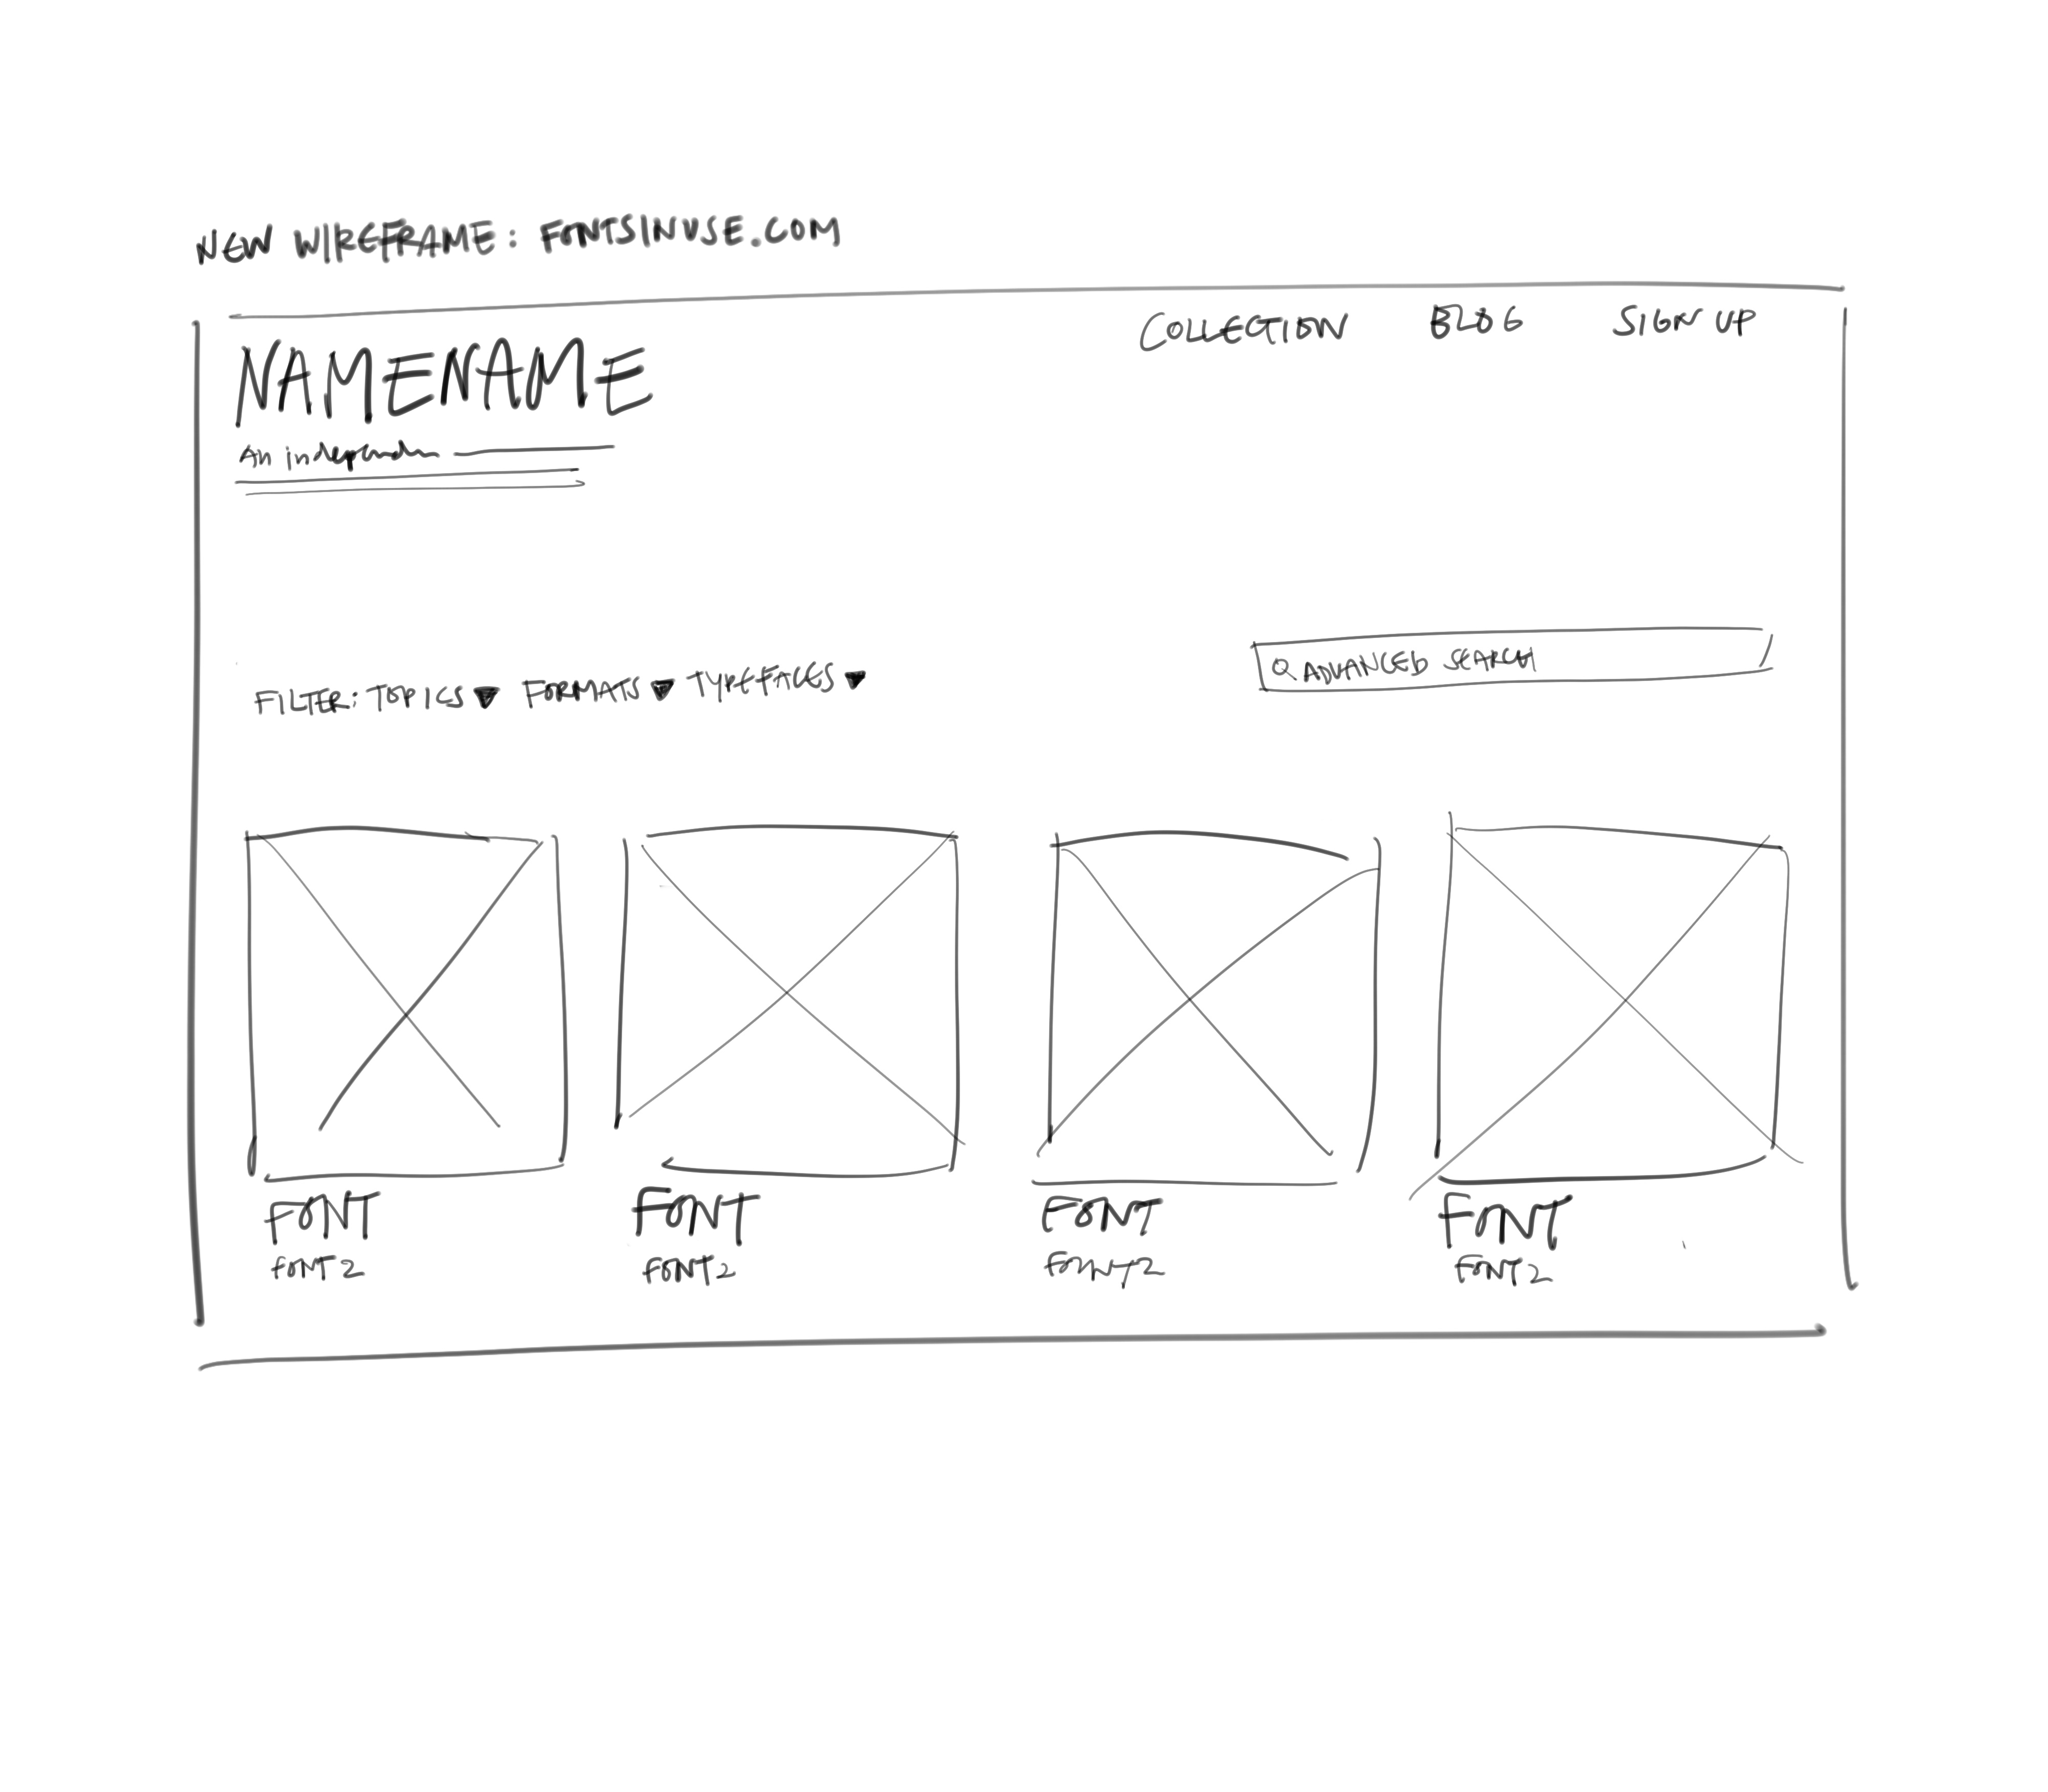 NEW WIREFRAME: FONTSINUSE.COM
COLLECTION BLOG SIGN UP
NAMENAME
An
FILTER: TOPICS ▼ FORMATS ▼ TYPEFACES ▼
ADVANCED SEARCH
FONT FONT FONT FONT
FONT2 FONT2 FONT2 FONT2